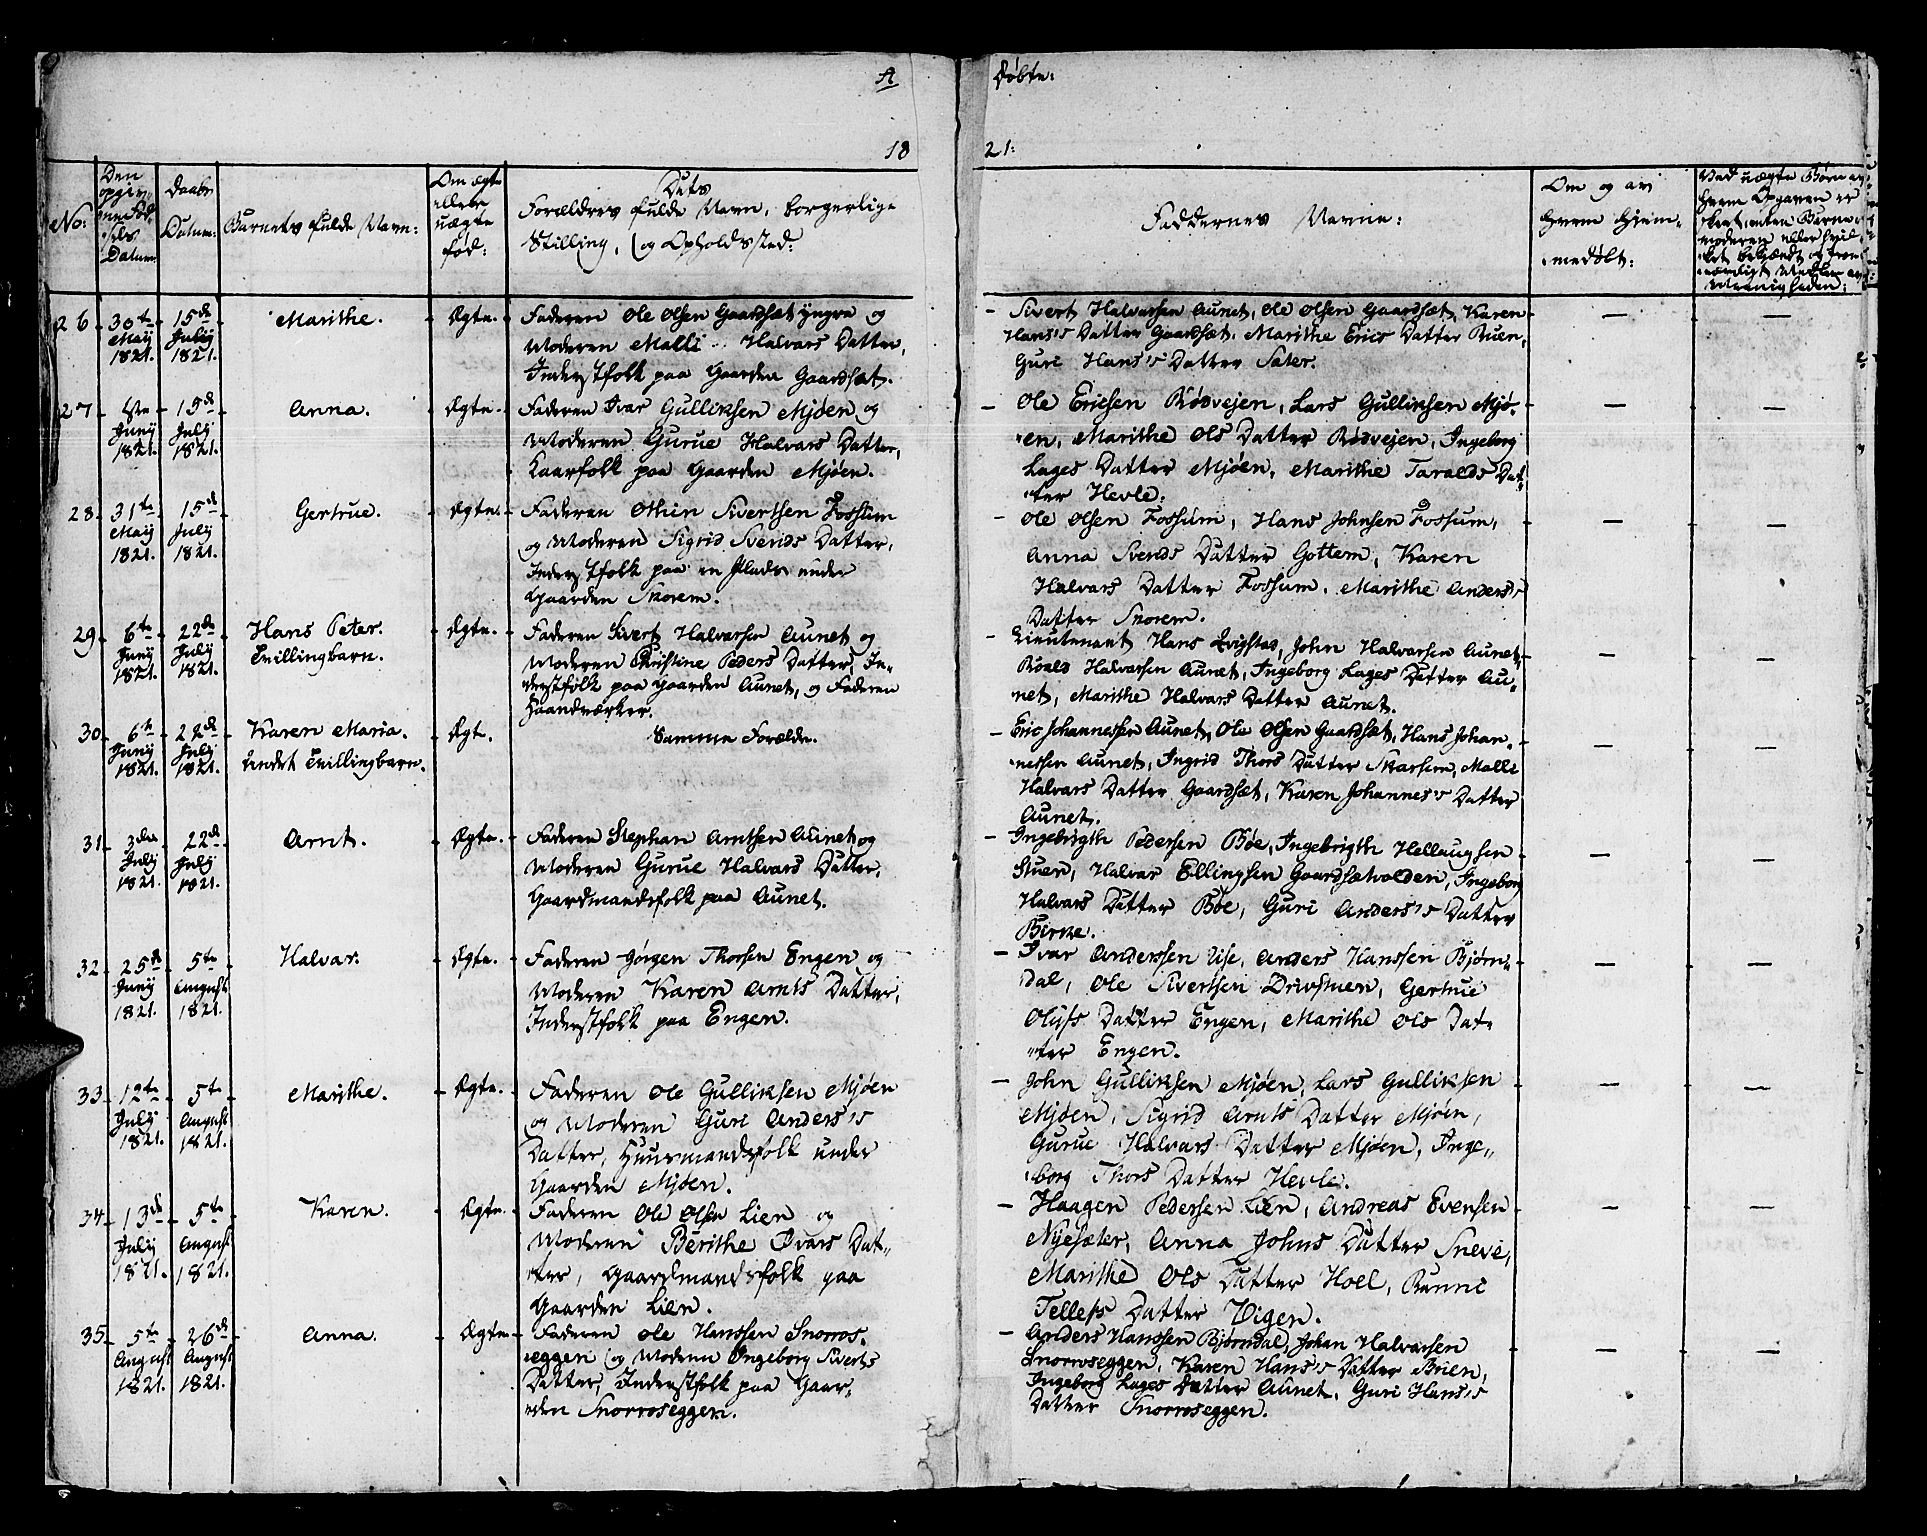 A
Døbte:
18
21:
No:
Den opgivne Fødsels Datum
Daabs Datum:
Barnets fulde Navn:
Om ægte ellers uægte fød:
Dets Forældres fulde Navn, borgerlige
Stilling, og Opholdssted:
Faddernes Navne:
Om og av
hvem Hjem-
medøbt:
26. 30te May 1821. 15de July 1821. Marithe. Ægte. Faderen Ole Olsen Gaardsæt yngre og
Moderen Malli Halvars Datter,
Inderstfolk paa Gaarden Gaardsæt.
Sivert Halvarsen Aunet, Ole Olsen Gaardsæt, Karen
Hans's Datter Gaardsæt, Marithe Erics Datter Buen,
Guri Hans's Datter Sæter.
27 Juny 1821. 15de July 1821. Anna. Ægte. Faderen Ivar Gulliksen Mjøen og
Moderen Gurue Halvars Datter,
Kaarfolk paa Gaarden Mjøen.
Ole Ericsen Røsvejen, Lars Gulliksen Mjø-
en, Marithe Ols Datter Røsvejen, Ingeborg
Lages Datter Mjøen, Marithe Taralds Dat-
ter Hevle.
28. 31te May 1821. 15de July 1821. Gertrue. Ægte. Faderen Othin Sivertsen Fossum
og Moderen Sigrid Svends Datter,
Inderstfolk paa en Plads under
Gaarden Skorem.
Ole Olsen Fossum, Hans Johnsen Fossum,
Anna Svends Datter Gottem, Karen
Halvars Datter Fossum, Marithe Anders's
Datter Skorem.
29 6te Juny 1821. 22de July 1821. Hans Peter. Tvillingbarn. Ægte. Faderen Sivert Halvarsen Aunet og
Moderen Christine Peders Datter, In-
derstfolk paa Gaarden Aunet, og Faderen
Haandværker.
Lieutenant Hans Qvigstad, John Halvarsen Aunet,
Roald Halvarsen Aunet, Ingeborg Lages Datter Au-
net, Marithe Halvars Datter Aunet.
30 6te Juny 1821. 22de July 1821. Karen Maria. Andet Tvillingbarn. Ægte. Samme Forældre.
Eric Johannessen Aunet, Ole Olsen Gaardsæt, Hans Johan-
nessen Aunet, Ingrid Thors Datter Skarsem, Malli
Halvars Datter Gaardsæt, Karen Johannes's Datter
Aunet.
31. 3die July 1821. 22de July 1821. Arnt. Ægte. Faderen Stephan Arntsen Aunet og
Moderen Gurue Halvars Datter,
Gaardmandsfolk paa Aunet.
Ingebrigth Pedersen Bøe, Ingebrigth Hellaugsen
Stuen, Halvar Ellingsen Gaardsætvolden, Ingeborg
Halvars Datter Bøe, Guri Anders's Datter
32 25de Juny 1821. 5te August 1821. Halvar. Ægte. Faderen Jørgen Thorsen Engen og
Moderen Karen Arnts Datter,
Inderstfolk paa Engen.
Ivar Anderssen Vise, Anders Hanssen Bjørn-
dal, Ole Sivertsen Drivstuen, Gertrue
Olufs Datter Engen, Marithe Ols Dat-
ter Engen.
33. 12te July 1821. 5te August 1821. Marithe. Ægte. Faderen Ole Gulliksen Mjøen
og Moderen Guri Anders's
Datter, Huusmandsfolk under
Gaarden Mjøen.
John Gulliksen Mjøen, Lars Gulliksen
Mjøen, Sigrid Arnts Datter Mjøen,
Gurue Halvars Datter Mjøen, Inge-
borg Thors Datter Hevle.
34 13de July 1821. 5te August 1821. Karen. Ægte. Faderen Ole Olsen Lien og
Moderen Berithe Ivars Dat-
ter, Gaardmandsfolk paa
Gaarden Lien.
Haagen Pedersen Lien, Andreas Evensen
Nyesæter, Anna Johns Datter Sneve,
Marithe Ols Datter Hoel, Runni
Tellefs Datter Vigen.
35. 5te August 1821. 26de August 1821. Anna. Ægte. Faderen Ole Hanssen Snoros-
eggen og Moderen Ingeborg Siverts
Datter, Inderstfolk paa Gaar-
den Snoroseggen.
Anders Hanssen Bjørndal, Johan Halvarsen
Snoroseggen, Karen Hans's Datter Brien,
Ingeborg Lages Datter Aunet, Guri Hans's
Datter Snoroseggen.